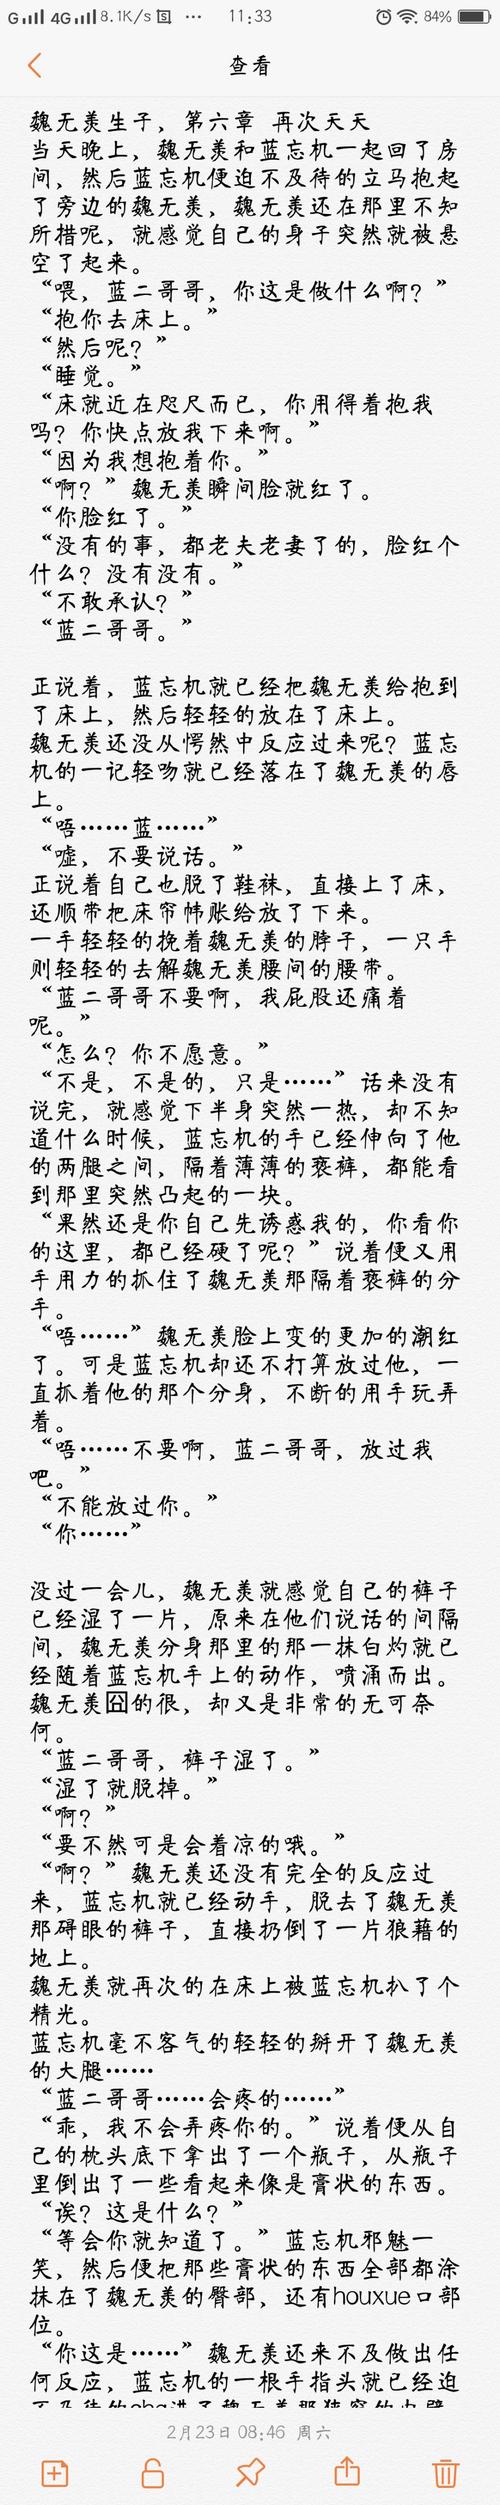 G 4G 8.1K/s 11:33 84%
查看
魏无羡生子，第六章 再次天天
当天晚上，魏无羡和蓝忘机一起回了房
间，然后蓝忘机便迫不及待的立马抱起
了旁边的魏无羡，魏无羡还在那里不知
所措呢，就感觉自己的身子突然就被悬
空了起来。
“喂，蓝二哥哥，你这是做什么啊？”
“抱你去床上。”
“然后呢？”
“睡觉。”
“床就近在咫尺而已，你用得着抱我
吗？你快点放我下来啊。”
“因为我想抱着你。”
“啊？”魏无羡瞬间脸就红了。
“你脸红了。”
“没有的事，都老夫老妻了的，脸红个
什么？没有没有。”
“不敢承认？”
“蓝二哥哥。”
正说着，蓝忘机就已经把魏无羡给抱到
了床上，然后轻轻的放在了床上。
魏无羡还没从愕然中反应过来呢？蓝忘
机的一记轻吻就已经落在了魏无羡的唇
上。
“唔……蓝……”
“嘘，不要说话。”
正说着自己也脱了鞋袜，直接上了床，
还顺带把床帘帏账给放了下来。
一手轻轻的挽着魏无羡的脖子，一只手
则轻轻的去解魏无羡腰间的腰带。
“蓝二哥哥不要啊，我屁股还痛着
呢。”
“怎么？你不愿意。”
“不是，不是的，只是……”话来没有
说完，就感觉下半身突然一热，却不知
道什么时候，蓝忘机的手已经伸向了他
的两腿之间，隔着薄薄的亵裤，都能看
到那里突然凸起的一块。
“果然还是你自己先诱惑我的，你看你
的这里，都已经硬了呢？”说着便又用
手用力的抓住了魏无羡那隔着亵裤的分
手。
“唔……”魏无羡脸上变的更加的潮红
了。可是蓝忘机却还不打算放过他，一
直抓着他的那个分身，不断的用手玩弄
着。
“唔……不要啊，蓝二哥哥，放过我
吧。”
“不能放过你。”
“你……”
没过一会儿，魏无羡就感觉自己的裤子
已经湿了一片，原来在他们说话的间隔
间，魏无羡分身那里的那一抹白灼就已
经随着蓝忘机手上的动作，喷涌而出。
魏无羡囧的很，却又是非常的无可奈
何。
“蓝二哥哥，裤子湿了。”
“湿了就脱掉。”
“啊？”
“要不然可是会着凉的哦。”
“啊？”魏无羡还没有完全的反应过
来，蓝忘机就已经动手，脱去了魏无羡
那碍眼的裤子，直接扔倒了一片狼藉的
地上。
魏无羡就再次的在床上被蓝忘机扒了个
精光。
蓝忘机毫不客气的轻轻的掰开了魏无羡
的大腿……
“蓝二哥哥……会疼的……”
“乖，我不会弄疼你的。”说着便从自
己的枕头底下拿出了一个瓶子，从瓶子
里倒出了一些看起来像是膏状的东西。
“诶？这是什么？”
“等会你就知道了。”蓝忘机邪魅一
笑，然后便把那些膏状的东西全部都涂
抹在了魏无羡的臀部，还有houxue口部
位。
“你这是……”魏无羡还来不及做出任
何反应，蓝忘机的一根手指头就已经迫
2月23日 08:46 周六